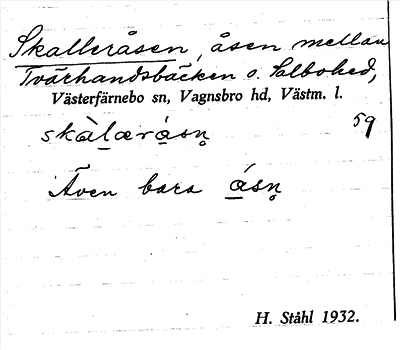 Skalleråsen, åsen mellan
Tvärhandsbäcken o. Salbohed,
Västerfärnebo sn, Vagnsbro hd, Västm. l.
skàl̲æråsn̥ 59
Även bara ǻsn̥
H. Ståhl 1932.